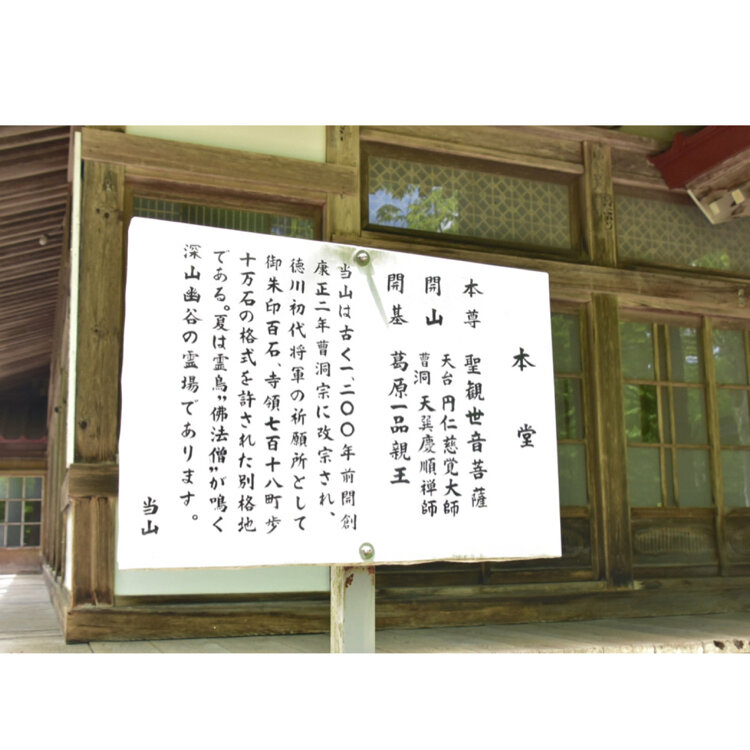 本堂
本尊 聖観世音菩薩
開山 天台 円仁慈覚大師
曹洞 天巽慶順禅師
開基 葛原一品親王
当山は古く一、二〇〇年前開創
康正二年曹洞宗に改宗され、
徳川初代将軍の祈願所として
御朱印百石、寺領七百十八町歩
十万石の格式を許された別格地
である。夏は霊鳥〝佛法僧〟が鳴く
深山幽谷の霊場であります。
当山